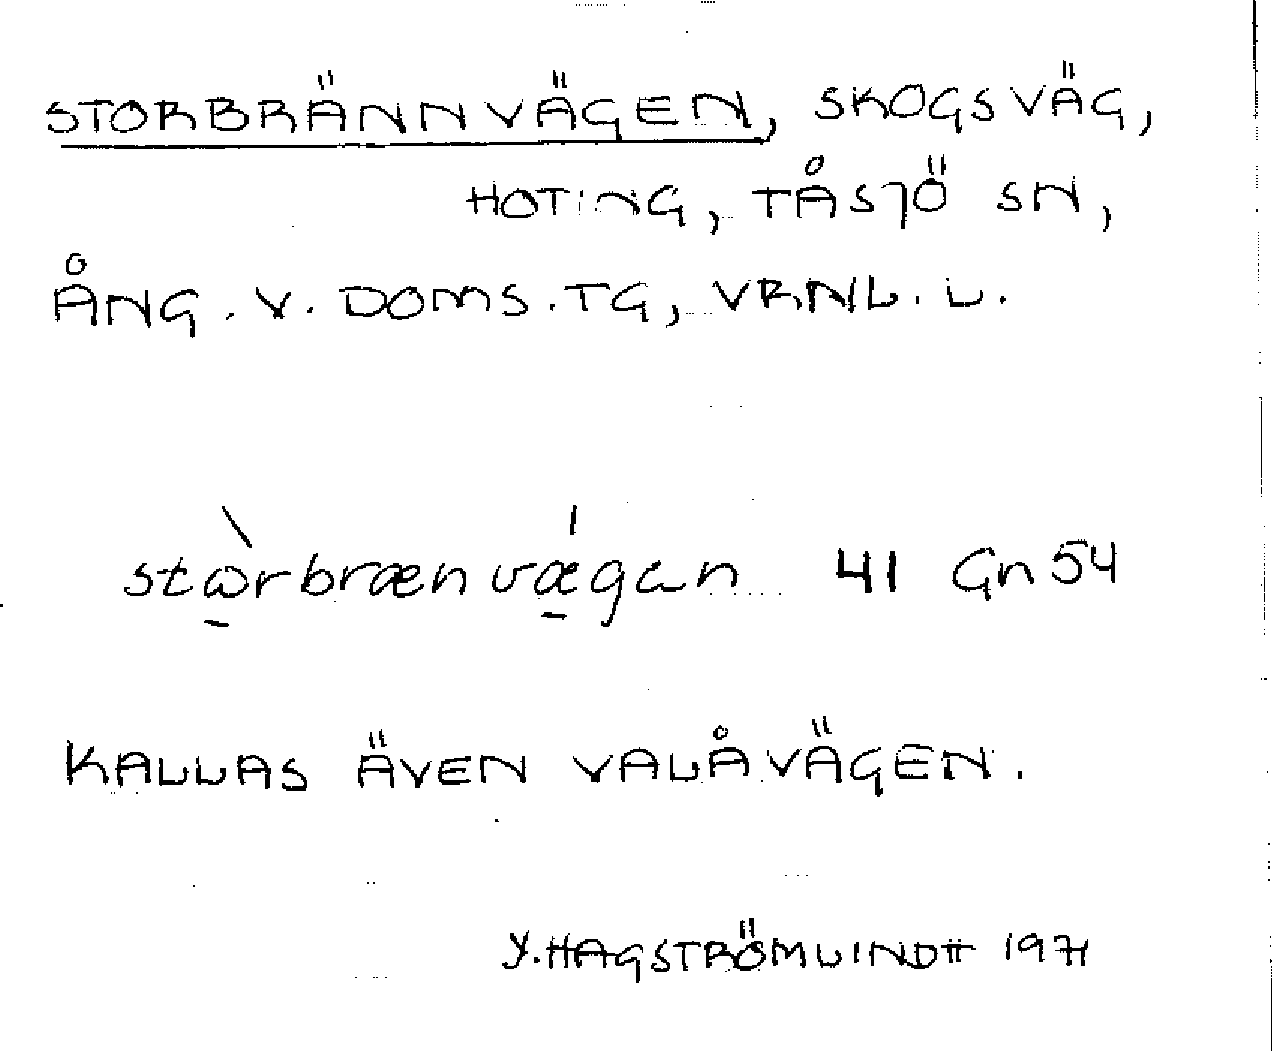 STORBRÄNNVÄGEN, SKOGSVÄG,
HOTING, TÅSJÖ SN,
ÅNG. V. DOMS. TG, VRNL. L.
stòrbrænvǽgan 41 Gn 54
KALLAS ÄVEN VALÅVÄGEN.
Y. HAGSTRÖMLINDH 1971